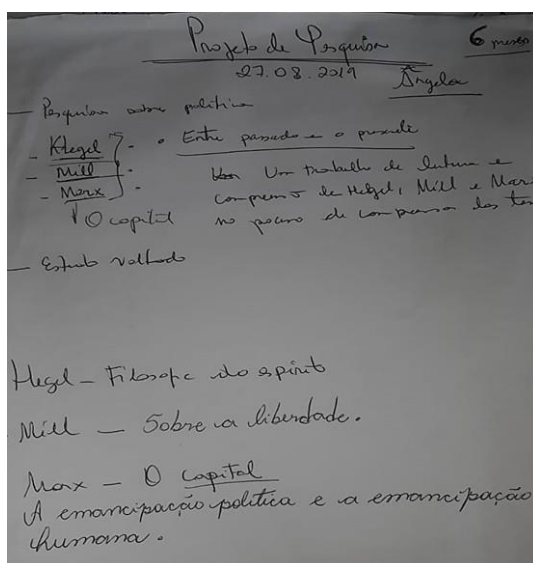 Projeto de Pesquisa
6 meses
27.08.2019
Ângela
— Pesquisa sobre política
- Hegel
• Entre passado e o presente
- Mill
Um trabalho de leitura e
- Marx
de Hegel, Mill e Marx
O capital
no de compreensão dos
— Estudo voltado
Hegel - Filosofia do espírito
Mill — Sobre a liberdade.
Marx - O capital
A emancipação política e a emancipação
humana.